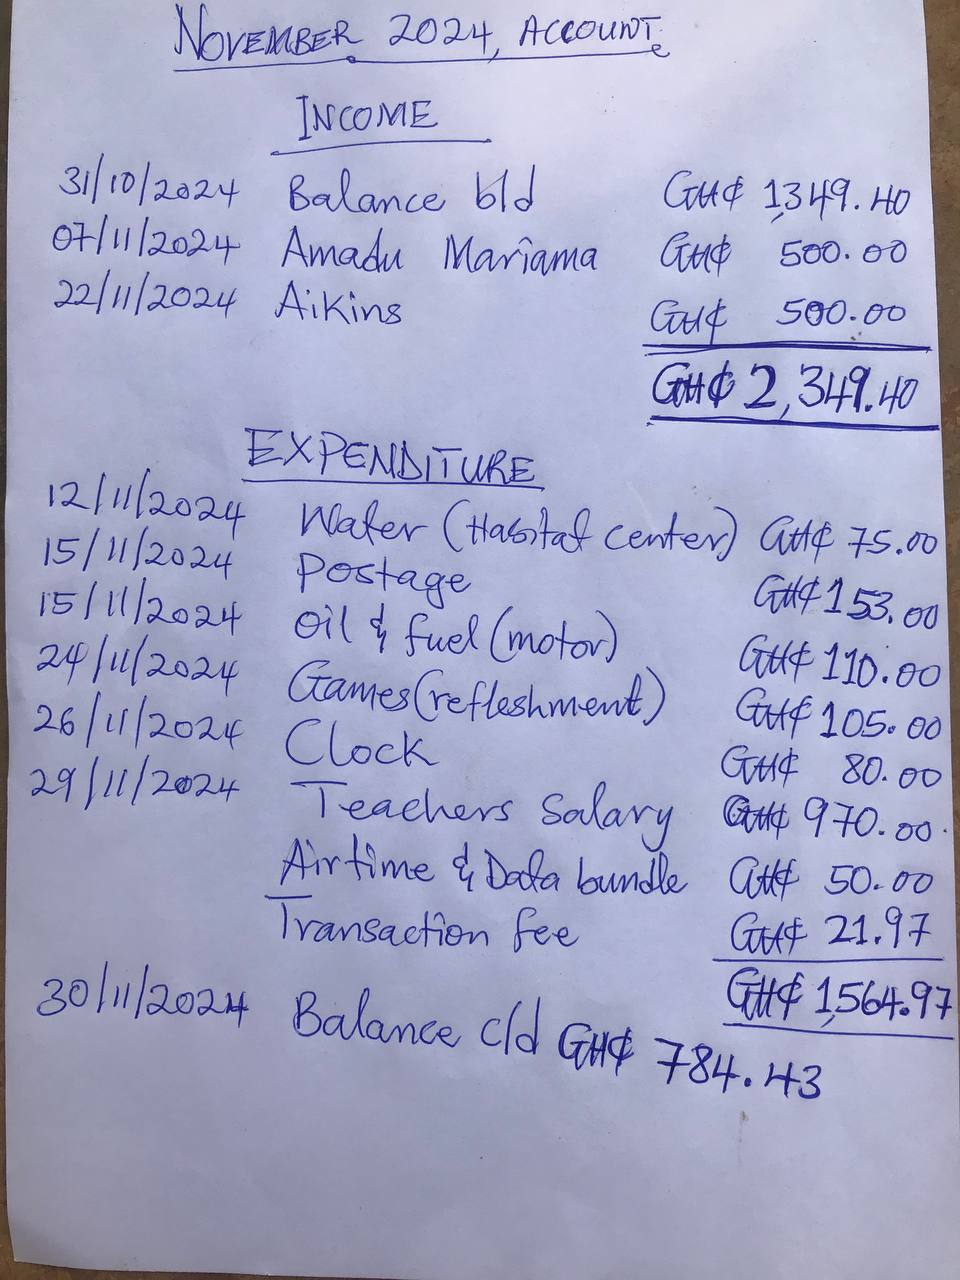 NOVEMBER 2024, ACCOUNT
INCOME
31/10/2024 Balance b/d GH¢ 1,349.40
07/11/2024 Amadu Mariama GH¢ 500.00
22/11/2024 Aikins GH¢ 500.00
GH¢ 2,349.40
EXPENDITURE
12/11/2024 Water (Habitat center) GH¢ 75.00
15/11/2024 Postage GH¢ 153.00
15/11/2024 Oil & fuel (motor) GH¢ 110.00
24/11/2024 Games (refleshment) GH¢ 105.00
26/11/2024 Clock GH¢ 80.00
29/11/2024 Teachers Salary GH¢ 970.00
Airtime & Data bundle GH¢ 50.00
Transaction fee GH¢ 21.97
GH¢ 1,564.97
30/11/2024 Balance c/d GH¢ 784.43